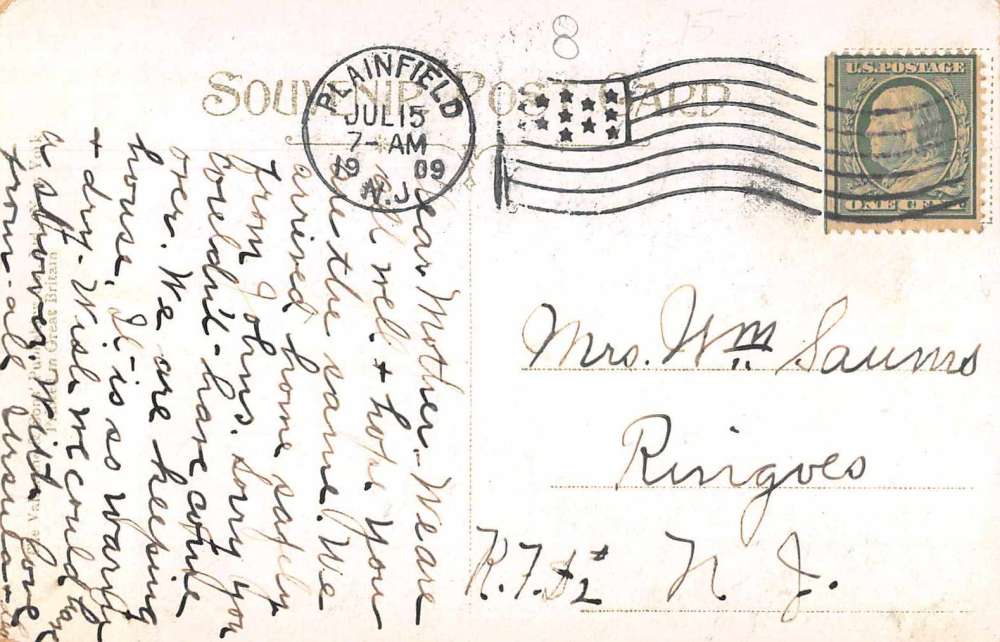 8
SOUVENIR POST CARD
PLAINFIELD
JUL 15
7-AM
1909
N.J.
U.S. POSTAGE
ONE CENT
Dear Mother - We are
all well + hope you
are the same. We
arrived home safely
from Johns. Sorry you
could'nt have come
over. We are keeping
house, It is so warm
+ dry. Wish we could have
a shower. With love
from all Ursula
Mrs. Wm Saums
Ringoes
N. J.
in Great Britain